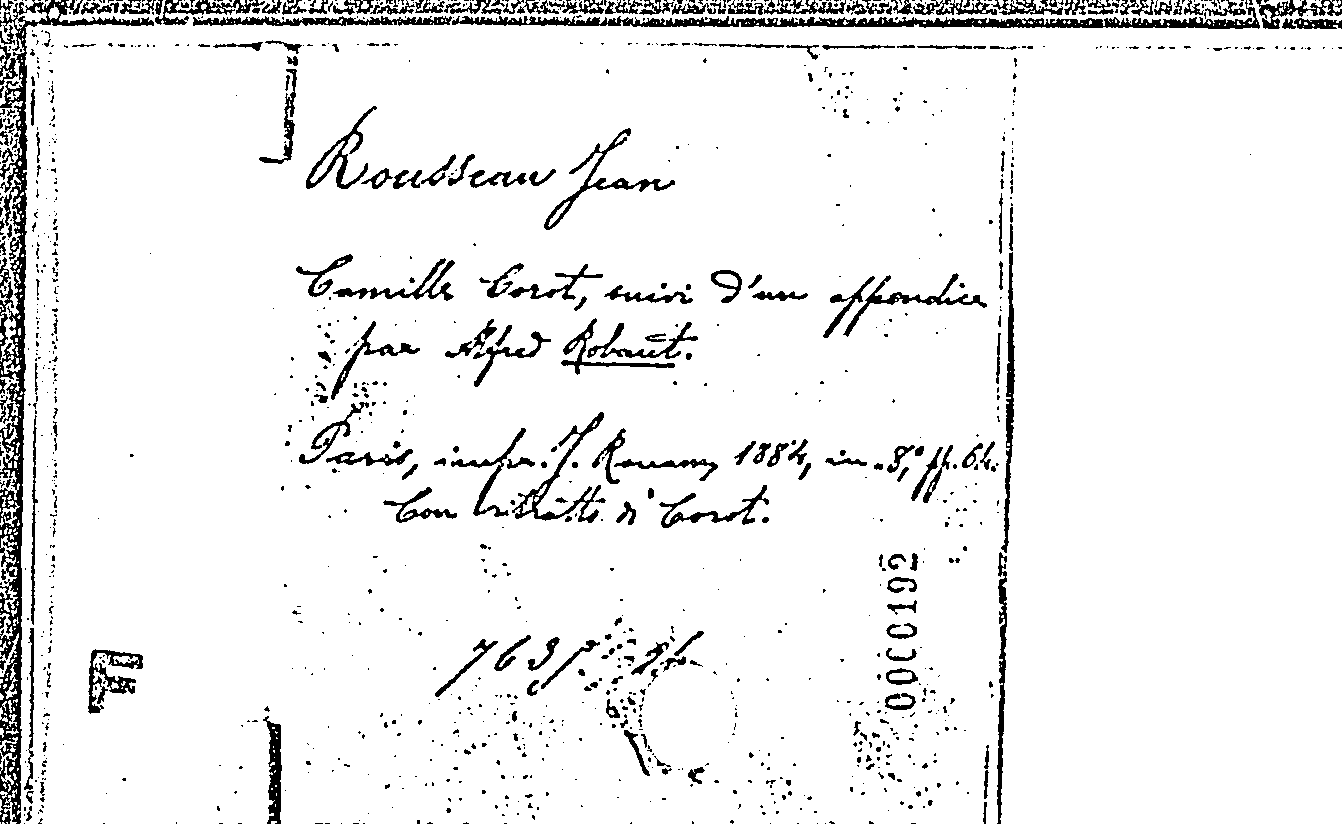 Rousseau Jean
Camille Corot, suivi d'un appendice
par Alfred Robaut.
Paris, impr. J. Rouam, 1884, in-8,° pp. 64.
Con ritratto di Corot.
0000192
F